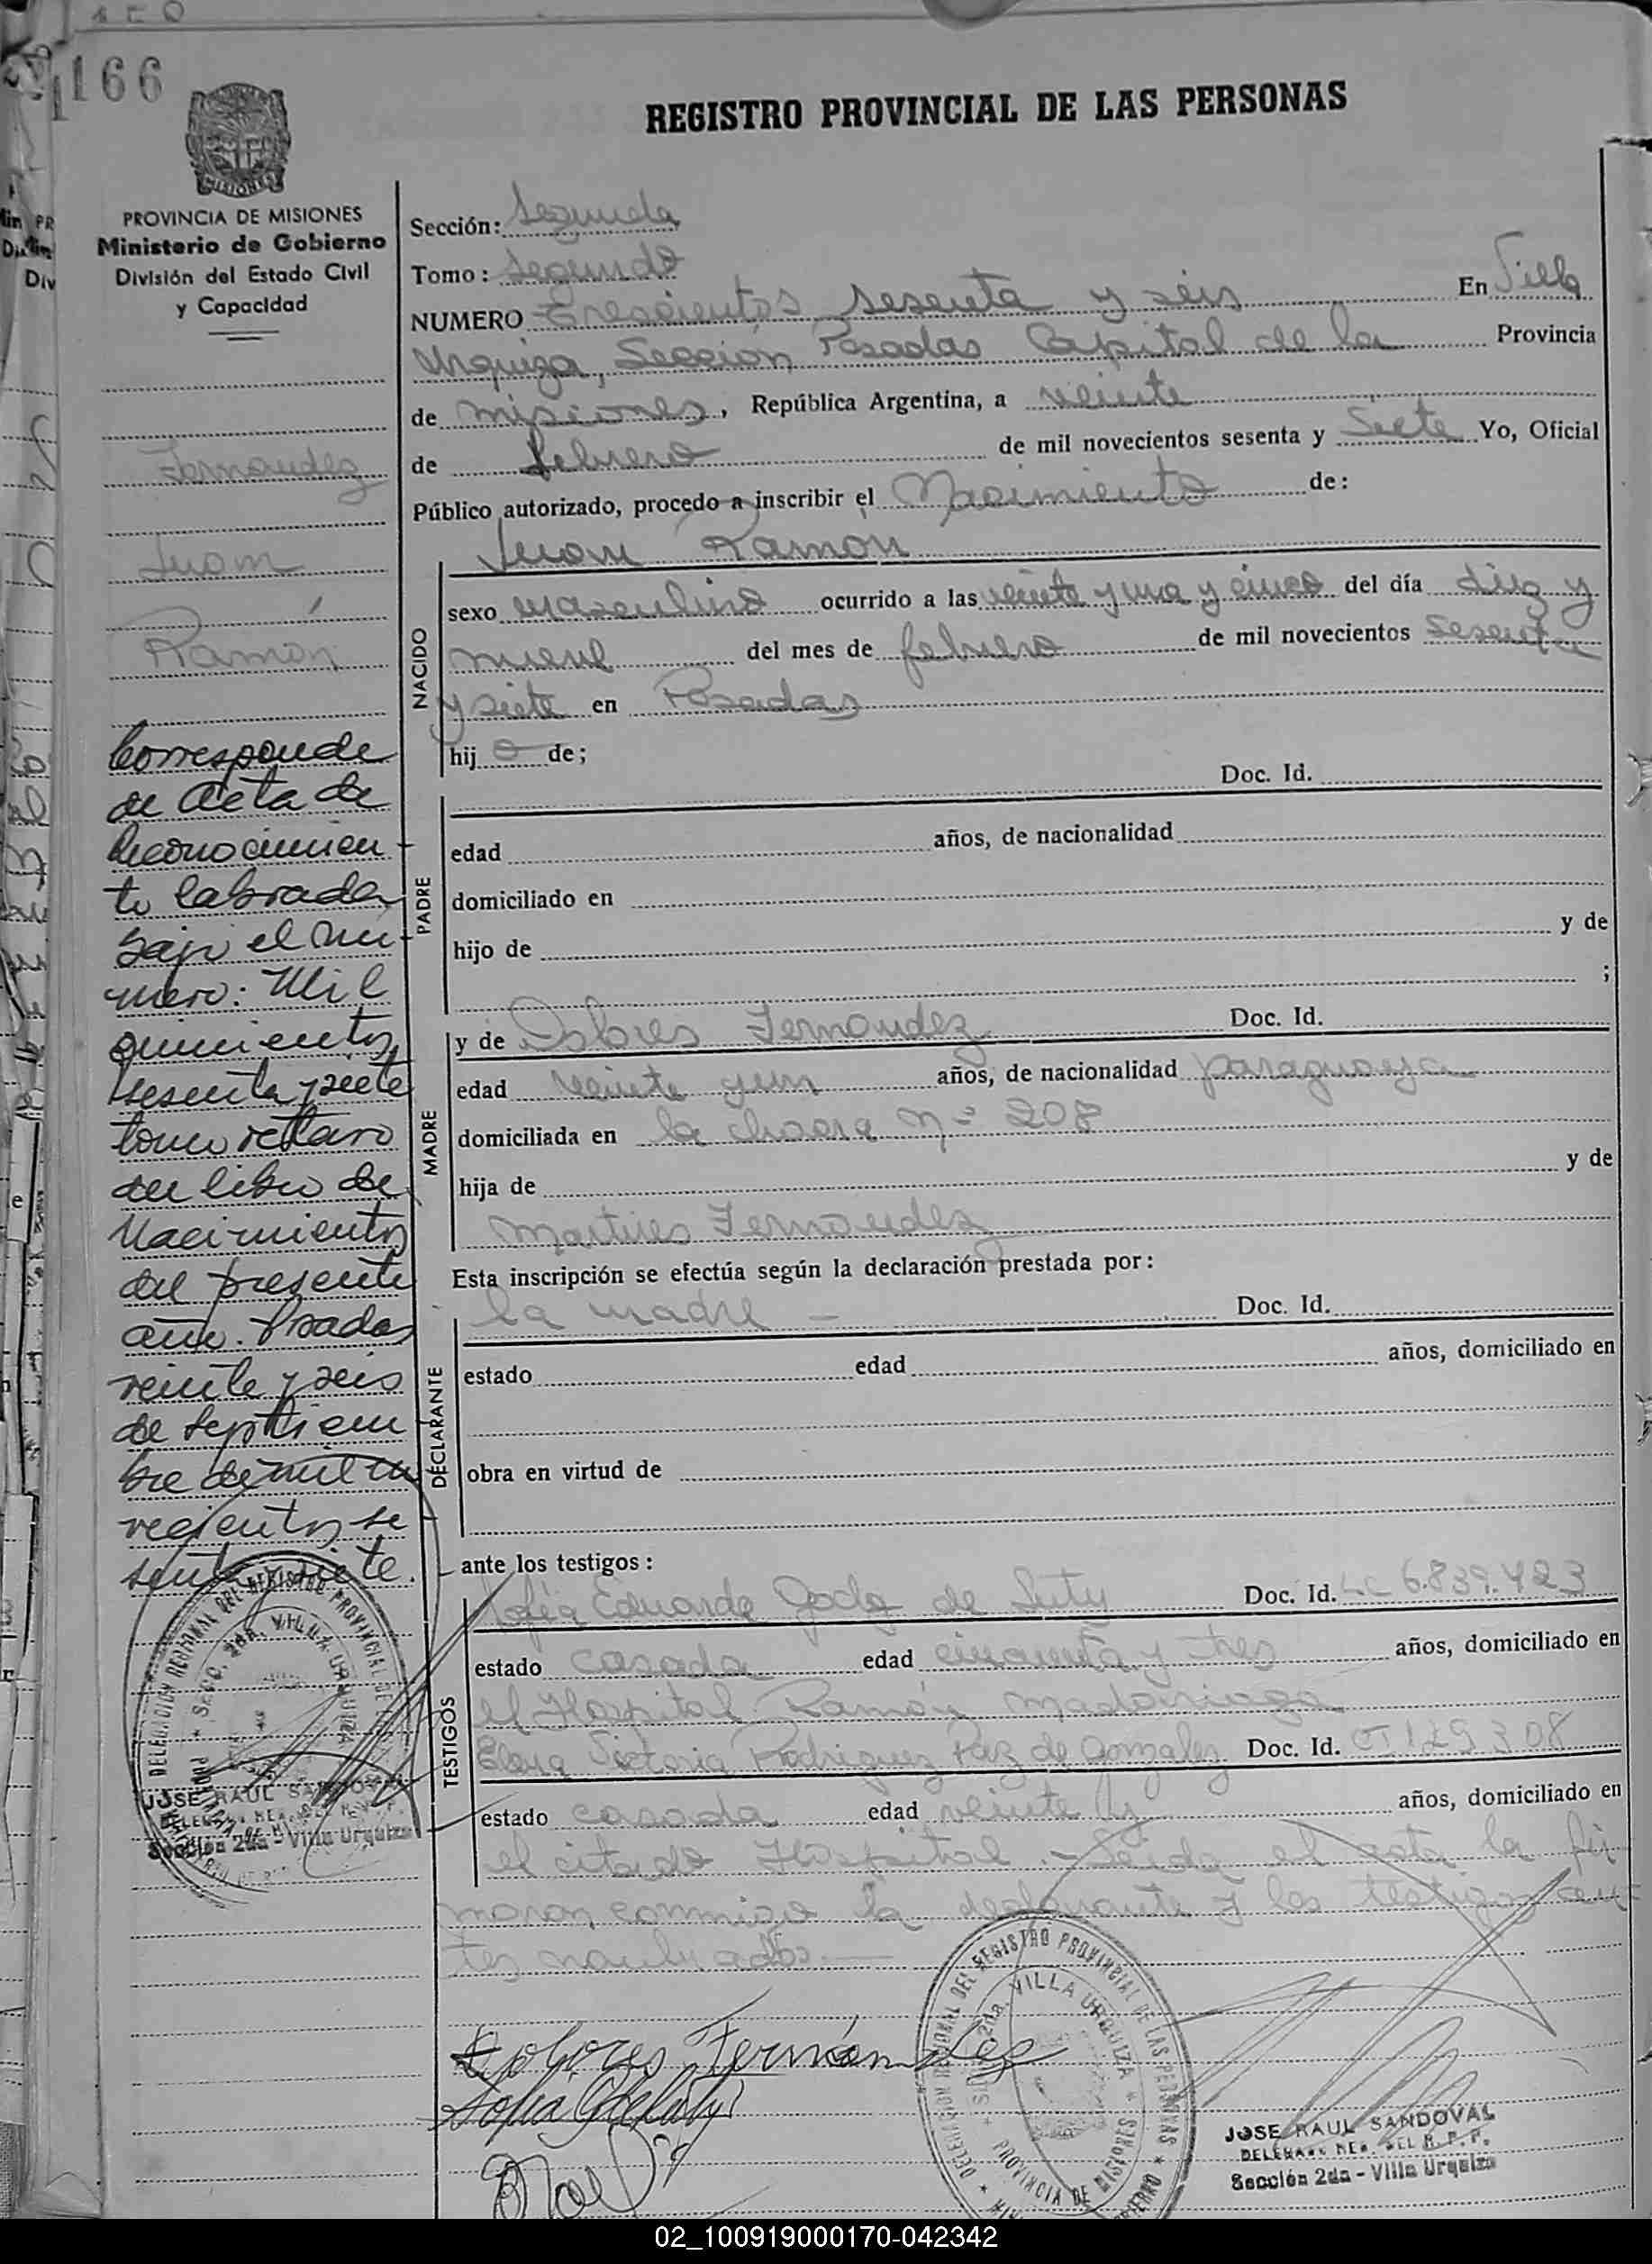 166
REGISTRO PROVINCIAL DE LAS PERSONAS
MISIONES
PROVINCIA DE MISIONES
Ministerio de Gobierno
División del Estado Civil
y Capacidad
Fernandez
Juan
Ramón
Corresponde
al Acta de
Reconocimien
to labrada
bajo el nú
mero: Mil
quinientos
sesenta y siete
tomo
del libro de
Nacimientos
del presente
año. Posadas
veinte y seis
de septiem
bre de mil no
vecientos se
senta y siete.
JOSE RAUL SANDOVAL
Sección 2da - Villa Urquiza
Sección: Segunda
Tomo: Segundo
NUMERO Trescientos sesenta y seis En Villa
Urquiza, Sección Posadas Capital de la Provincia
de Misiones, República Argentina, a veinte
de febrero de mil novecientos sesenta y siete Yo, Oficial
Público autorizado, procedo a inscribir el Nacimiento de:
Juan Ramón
NACIDO
sexo masculino ocurrido a las veinte y una y cinco del día diez y
nueve del mes de febrero de mil novecientos sesenta
y siete en Posadas
hijo de;
PADRE
Doc. Id.
edad años, de nacionalidad
domiciliado en
hijo de y de
;
MADRE
y de Dolores Fernandez Doc. Id.
edad veinte y un años, de nacionalidad paraguaya
domiciliada en la chacra Nº 208
hija de y de
Martires Fernandez
Esta inscripción se efectúa según la declaración prestada por:
DECLARANTE
la madre - Doc. Id.
estado edad años, domiciliado en
obra en virtud de
ante los testigos:
TESTIGOS
Sofia Eduarda de Doc. Id. LC 6.839.423
estado casada edad cincuenta y tres años, domiciliado en
el Hospital Ramón Madariaga
Elena Victoria Rodriguez Paz de Gonzalez Doc. Id. 129308
estado casada edad veinte años, domiciliado en
el citado Hospital.- Leida el acta la fir
maron conmigo la declarante y los testigos an
tes nombrados.-
Dolores Fernández
Sofia
DELEGACION REGIONAL DEL REGISTRO PROVINCIAL DE LAS PERSONAS
2da. VILLA URQUIZA
PROVINCIA DE MISIONES
JOSE RAUL SANDOVAL
DELEGADO REG. DEL R. P. P.
Sección 2da - Villa Urquiza
02_100919000170-042342